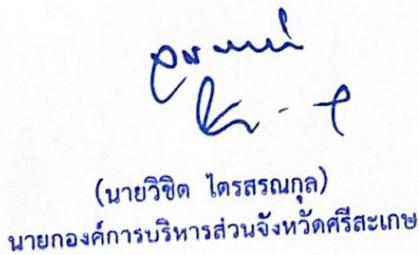 (นายวิชิต ไตรสรณกุล)
นายกองค์การบริหารส่วนจังหวัดศรีสะเกษ